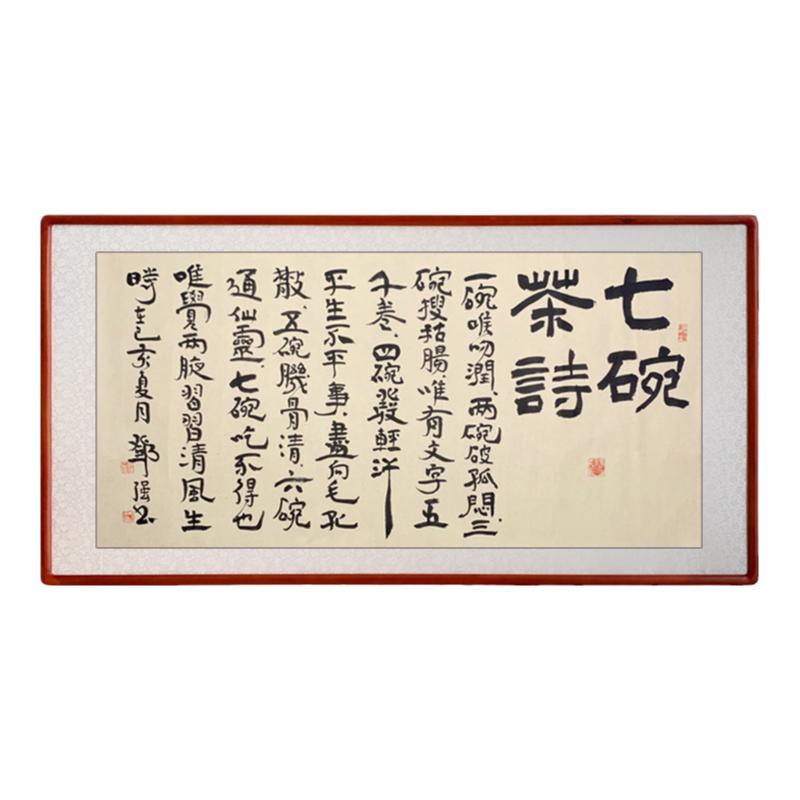 七碗
茶詩
一碗喉吻潤、两碗破孤悶、三
碗搜枯腸、唯有文字五
千卷、四碗發輕汗
平生不平事、盡向毛孔
散、五碗肌骨清、六碗
通仙靈、七碗吃不得也
唯覺两腋習習清風生
時在己亥夏月 鄧强書